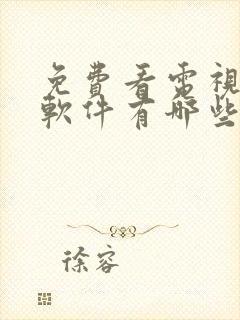 免費看電視
軟件有哪些
徐容